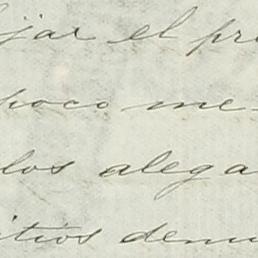 ijar el pre
poco me-
los alega
itios demu